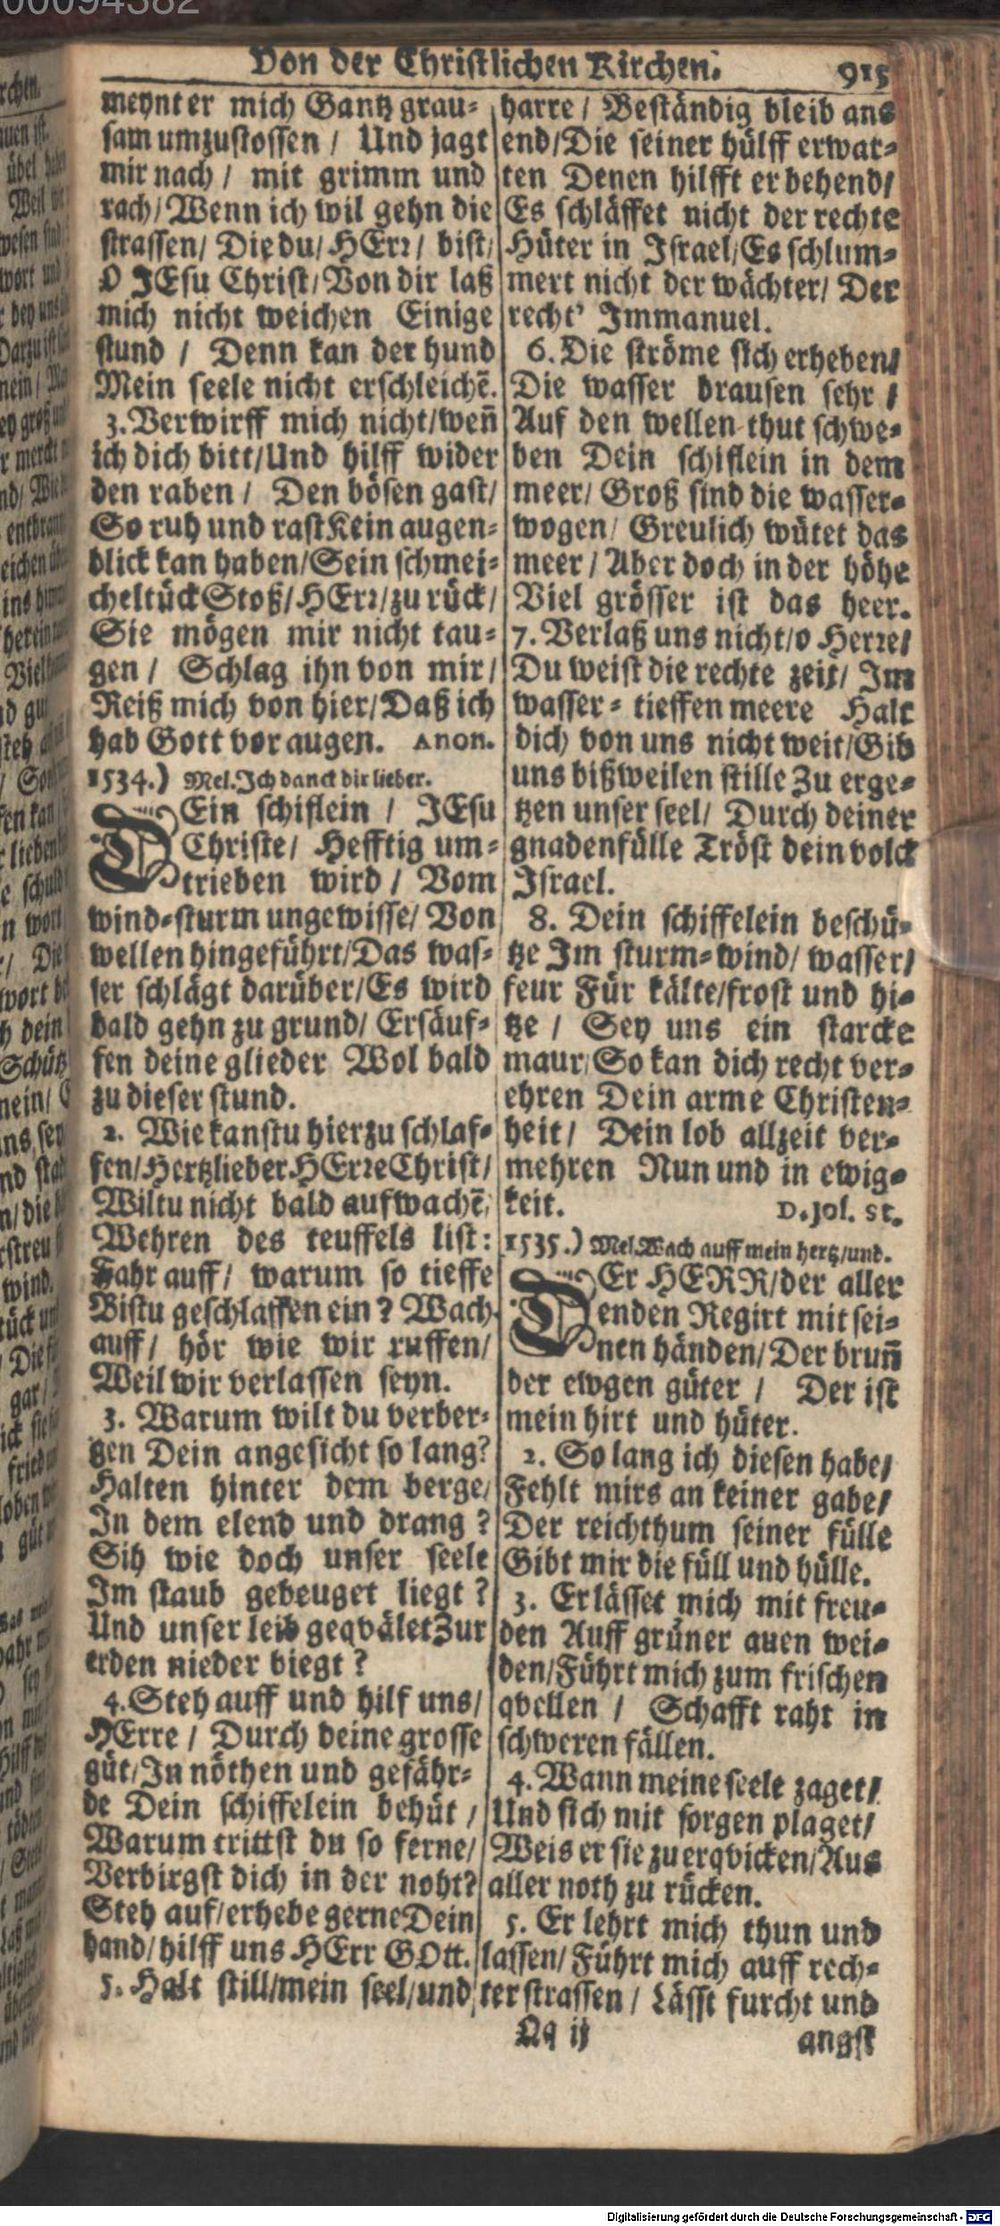 Von der Christlichen Kirchen.
915
meynt er mich Gantz grau-
sam umzustossen / Und jagt
mir nach / mit grimm und
rach/ Wenn ich wil gehn die
strassen/ Die du/ HErr/ bist/
O JEsu Christ/ Von dir laß
mich nicht weichen Einige
stund / Denn kan der hund
Mein seele nicht erschleichẽ.
3. Verwirff mich nicht/ weñ
ich dich bitt/ Und hilff wider
den raben / Den bösen gast/
So ruh und rast Kein augen-
blick kan haben/ Sein schmei-
cheltück Stoß/ HErr/ zu rück/
Sie mögen mir nicht tau-
gen / Schlag ihn von mir/
Reiß mich von hier/ Daß ich
hab Gott vor augen. Anon.
1534.) Mel. Ich danck dir lieber.
DEin schiflein / JEsu
Christe/ Hefftig um-
trieben wird / Vom
wind-sturm ungewisse/ Von
wellen hingeführt/ Das was-
ser schlägt darüber/ Es wird
bald gehn zu grund/ Ersäuf-
fen deine glieder Wol bald
zu dieser stund.
2. Wie kanstu hierzu schlaf-
fen/ Hertzlieber HErre Christ/
Wiltu nicht bald aufwachẽ/
Wehren des teuffels list:
Fahr auff/ warum so tieffe
Bistu geschlaffen ein? Wach
auff/ hör wie wir ruffen/
Weil wir verlassen seyn.
3. Warum wilt du verber-
gen Dein angesicht so lang?
Halten hinter dem berge/
In dem elend und drang?
Sih wie doch unser seele
Im staub gebeuget liegt?
Und unser leib geqvälet Zur
erden nieder biegt?
4. Steh auff und hilf uns/
HErre / Durch deine grosse
güt/ In nöthen und gefähr-
de Dein schiffelein behüt /
Warum trittst du so ferne/
Verbirgst dich in der noht?
Steh auf/ erhebe gerne Dein
hand/ hilff uns HErr GOtt.
5. Halt still/ mein seel/ und
harre / Beständig bleib ans
end/ Die seiner hülff erwar-
ten Denen hilfft er behend/
Es schläffet nicht der rechte
Hüter in Israel/ Es schlum-
mert nicht der wächter/ Der
recht' Immanuel.
6. Die ströme sich erheben/
Die wasser brausen sehr /
Auf den wellen thut schwe-
ben Dein schiflein in dem
meer/ Groß sind die wasser-
wogen/ Greulich wütet das
meer / Aber doch in der höhe
Viel grösser ist das heer.
7. Verlaß uns nicht/ o Herre/
Du weist die rechte zeit/ Im
wasser-tieffen meere Halt
dich von uns nicht weit/ Gib
uns bißweilen stille Zu erge-
tzen unser seel/ Durch deiner
gnadenfülle Tröst dein volck
Israel.
8. Dein schiffelein beschü-
tze Im sturm-wind/ wasser/
feur Für kälte/ frost und hi-
tze / Sey uns ein starcke
maur/ So kan dich recht ver-
ehren Dein arme Christen-
heit/ Dein lob allzeit ver-
mehren Nun und in ewig-
keit. D. Jos. St.
1535.) Mel. Wach auff mein hertz/ und.
DEr HERR/ der aller
enden Regirt mit sei-
nen händen/ Der bruñ
der ewgen güter / Der ist
mein hirt und hüter.
2. So lang ich diesen habe/
Fehlt mirs an keiner gabe/
Der reichthum seiner fülle
Gibt mir die füll und hülle.
3. Er lässet mich mit freu-
den Auff grüner auen wei-
den/ Führt mich zum frischen
qvellen / Schafft raht in
schweren fällen.
4. Wann meine seele zaget/
Und sich mit sorgen plaget/
Weis er sie zu erqvicken/ Aus
aller noth zu rücken.
5. Er lehrt mich thun und
lassen/ Führt mich auff rech-
ter strassen / Lässt furcht und
Qq ij
angst
Digitalisierung gefördert durch die Deutsche Forschungsgemeinschaft - DFG